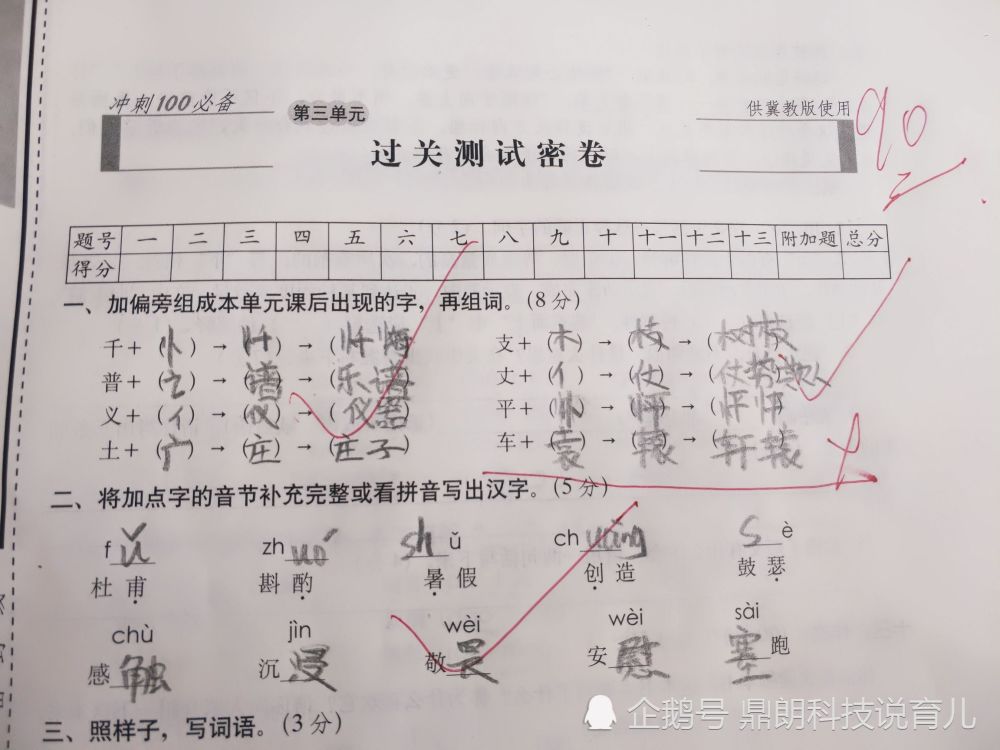 冲刺100必备
第三单元
供冀教版使用
90
过关测试密卷
题号 一 二 三 四 五 六 七 八 九 十 十一 十二 十三 附加题 总分
得分
一、加偏旁组成本单元课后出现的字，再组词。(8分)
千+(忄)→(忏)→(忏悔) 支+(木)→(枝)→(树枝)
普+(讠)→(谱)→(乐谱) 丈+(亻)→(仗)→(仗势欺人)
义+(亻)→(仪)→(仪器) 平+(忄)→(怦)→(怦怦)
土+(广)→(庄)→(庄子) 车+(袁)→(辕)→(轩辕)
二、将加点字的音节补充完整或看拼音写出汉字。(5分)
fǔ zhuó shǔ chuàng sè
杜甫 斟酌 暑假 创造 鼓瑟
chù jìn wèi wèi sài
感触 沉浸 敬畏 安慰 塞跑
三、照样子，写词语。(3分)
企鹅号 鼎朗科技说育儿